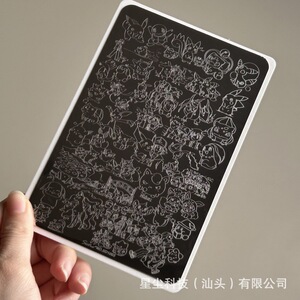 星尘科技（汕头）有限公司